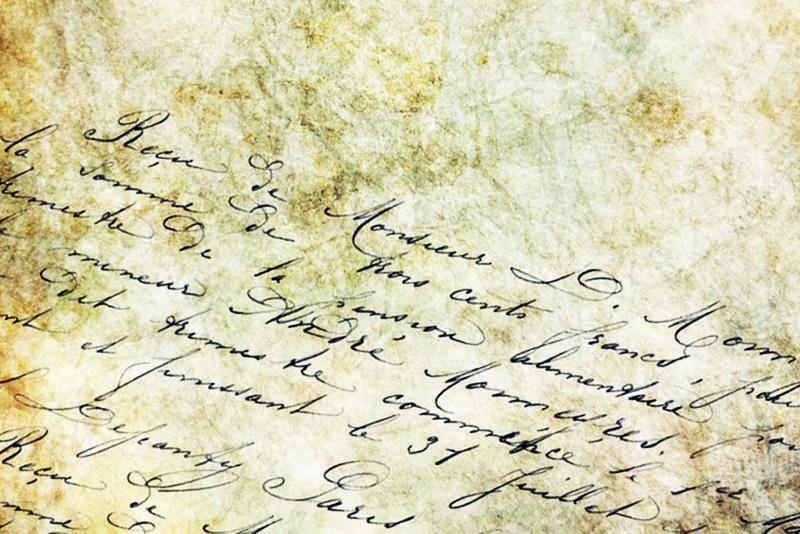 Reçu de Monsieur D. Monn
la somme de trois cents francs,
trimestre de la pension alimentaire
mineur André Monnières.
dit trimestre commence le 1er
nt et finissant le 31 Juillet
Paris
Reçu de
mme